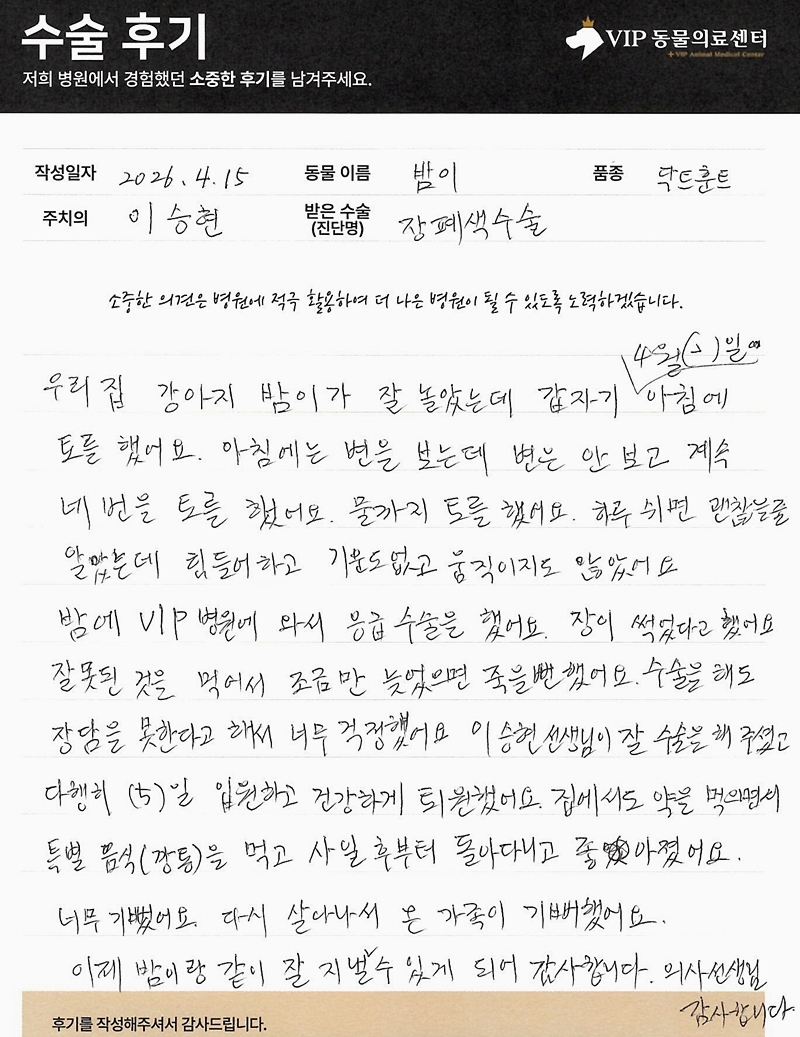 수술 후기
저희 병원에서 경험했던 소중한 후기를 남겨주세요.
VIP 동물의료센터
+ VIP Animal Medical Center
작성일자 2026.4.15 동물 이름 밤이 품종 닥트훈트
주치의 이승현 받은 수술 (진단명) 장폐색수술
소중한 의견은 병원에 적극 활용하여 더 나은 병원이 될 수 있도록 노력하겠습니다.
4월( )일
우리 집 강아지 밤이가 잘 놀았는데 갑자기 아침에
토를 했어요. 아침에는 변을 보는데 변은 안 보고 계속
네 번을 토를 했어요. 물까지 토를 했어요. 하루 쉬면 괜찮을줄
알았는데 힘들어하고 기운도없고 움직이지도 않았어요
밤에 VIP 병원에 와서 응급 수술을 했어요. 장이 썩었다고 했어요
잘못된 것을 먹어서 조금만 늦었으면 죽을뻔했어요. 수술을 해도
장담을 못한다고 해서 너무 걱정했어요 이승현선생님이 잘 수술을 해 주셨고
다행히 (5)일 입원하고 건강하게 퇴원했어요. 집에서도 약을 먹으면서
특별 음식(깡통)을 먹고 사일 후부터 돌아다니고 좋아졌어요.
너무 기뻤어요. 다시 살아나서 온 가족이 기뻐했어요.
이제 밤이랑 같이 잘 지낼수 있게 되어 감사합니다. 의사선생님
감사합니다.
후기를 작성해주셔서 감사드립니다.